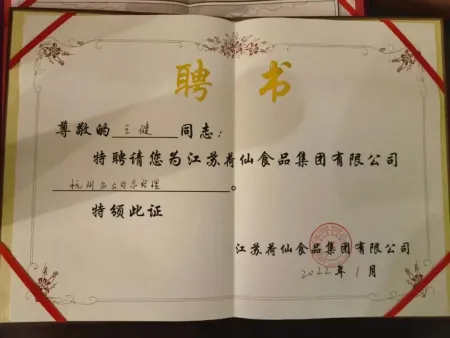 聘书
尊敬的 王健 同志：
特聘请您为江苏荷仙食品集团有限公司
杭州分公司总经理。
特颁此证
江苏荷仙食品集团有限公司
2022年1月